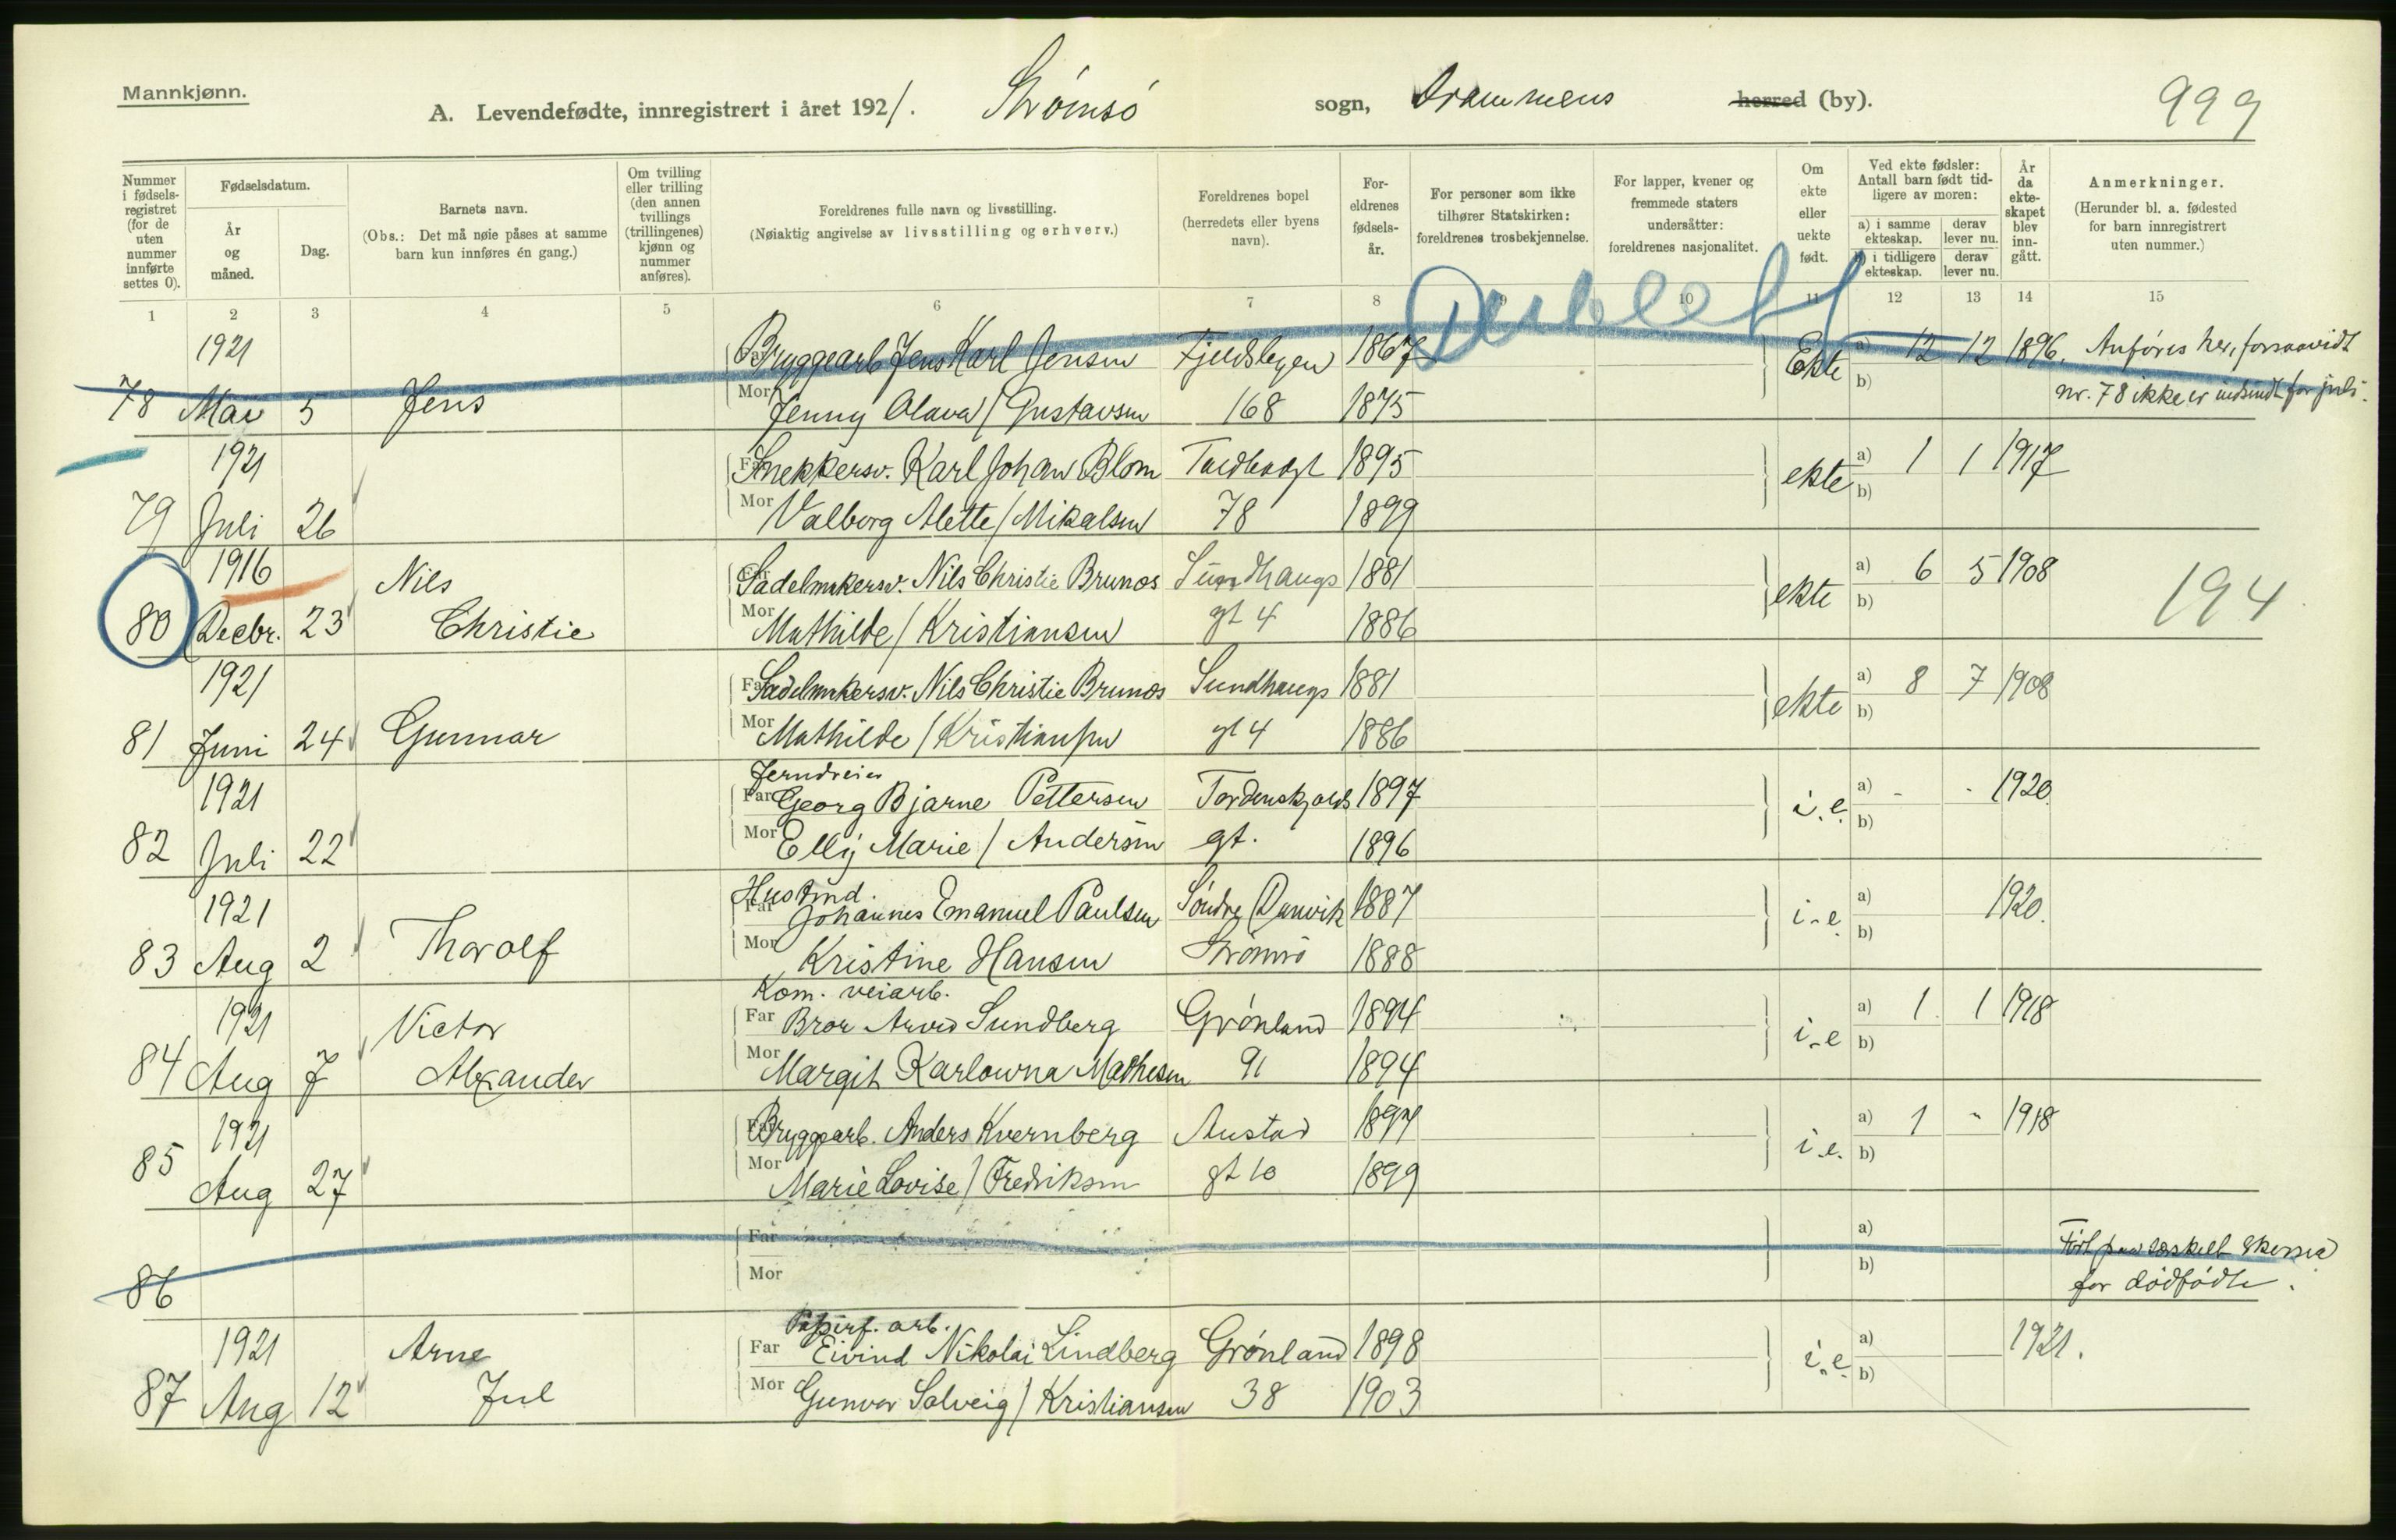 Mannkjønn.
A. Levendefødte, innregistrert i året 1921. Strømsø sogn, Drammens herred (by). 999
Nummer i fødsels-registret (for de uten nummer innførte settes 0).
Fødselsdatum.
År og måned.
Dag.
Barnets navn.
(Obs.: Det må nøie påses at samme barn kun innføres én gang.)
Om tvilling eller trilling (den annen tvillings (trillingenes) kjønn og nummer anføres).
Foreldrenes fulle navn og livsstilling.
(Nøiaktig angivelse av livsstilling og erhverv.)
Foreldrenes bopel
(herredets eller byens navn).
For-eldrenes fødsels-år.
For personer som ikke tilhører Statskirken: foreldrenes trosbekjennelse.
For lapper, kvener og fremmede staters undersåtter: foreldrenes nasjonalitet.
Om ekte eller uekte født.
Ved ekte fødsler: Antall barn født tid-ligere av moren:
a) i samme ekteskap. derav lever nu.
b) i tidligere ekteskap. derav lever nu.
År da ekte-skapet blev inn-gått.
Anmerkninger.
(Herunder bl. a. fødested for barn innregistrert uten nummer.)
1 2 3 4 5 6 7 8 9 10 11 12 13 14 15
Dublett
1921 Far Bryggearb Jens Karl Jensen Fjeldsbyen 1867 Ekte a) 12 12 1896. Anføres her, forsaavidt
78 Mai 5 Jens Mor Jenny Olava / Gustavsen 168 1875 b) nr. 78 ikke er indsendt for juli.
1921 Far Snekkersv. Karl Johan Blom 1895 ekte a) 1 1 1917
79 Juli 26 Mor Valborg Alette / Mikalsen 78 1899 b)
1916 Nils Far Sadelmakersv. Nils Christie Brunos Sundhaugs 1881 ekte a) 6 5 1908
80 Decbr. 23 Christie Mor Mathilde / Kristiansen gt 4 1886 b) 194
1921 Far Sadelmakersv. Nils Christie Brunos Sundhaugs 1881 ekte a) 8 7 1908
81 Juni 24 Gunnar Mor Mathilde / Kristiansen gt 4 1886 b)
Jerndreier
1921 Far Georg Bjarne Pettersen Tordenskjolds 1897 i.e. a) - - 1920.
82 Juli 22 Mor Elly Marie / Andersen gt. 1896 b)
Hustind.
1921 Far Johannes Emanuel Paulsen Søndre Danvik 1887 i.e. a) 1920.
83 Aug 2 Thorolf Mor Kristine Hansen Strømsø 1888 b)
Kom. veiarb.
1921 Victor Far Bror Arvid Sundberg Grønland 1894 i.e a) 1. 1 1918
84 Aug 7 Alexander Mor Margit Karlowna Mathesen 91 1894 b)
1921 Far Bryggearb. Anders Kvernberg Austad 1894 i.e. a) 1 - 1918
85 Aug 27 Mor Marie Lovise / Fredriksen gt 10 1899 b)
Far a) Ført paa særskilt skema
86 Mor b) for dødfødte.
Papirf. arb.
1921 Arne Far Eivind Nikolai Lindberg Grønland 1898 i.e. a) 1921.
87 Aug 12 Jul Mor Gunvor Solveig / Kristiansen 38 1903 b)